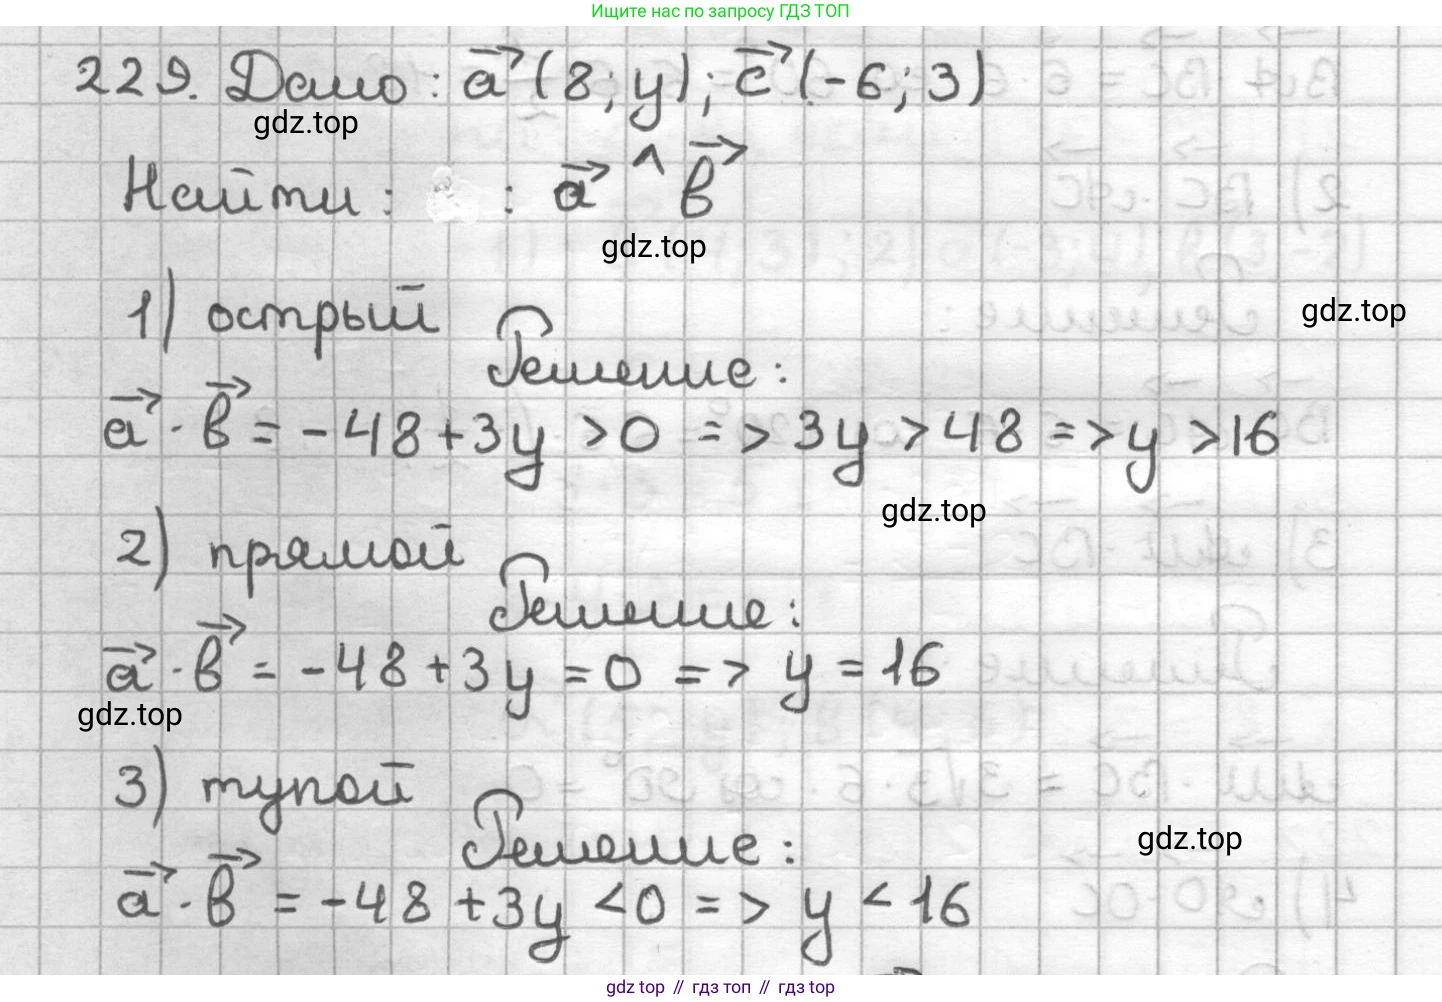 Ищите нас по запросу ГДЗ ТОП
229. Дано: a⃗ (8; y); c⃗ (-6; 3)
gdz.top
Найти: : a⃗ ^ b⃗
gdz.top
1) острый
gdz.top
Решение:
a⃗ · b⃗ = -48 + 3y > 0 => 3y > 48 => y > 16
gdz.top
2) прямой
Решение:
a⃗ · b⃗ = -48 + 3y = 0 => y = 16
gdz.top
3) тупой
Решение:
gdz.top
a⃗ · b⃗ = -48 + 3y < 0 => y < 16
gdz top // гдз топ // гдз top